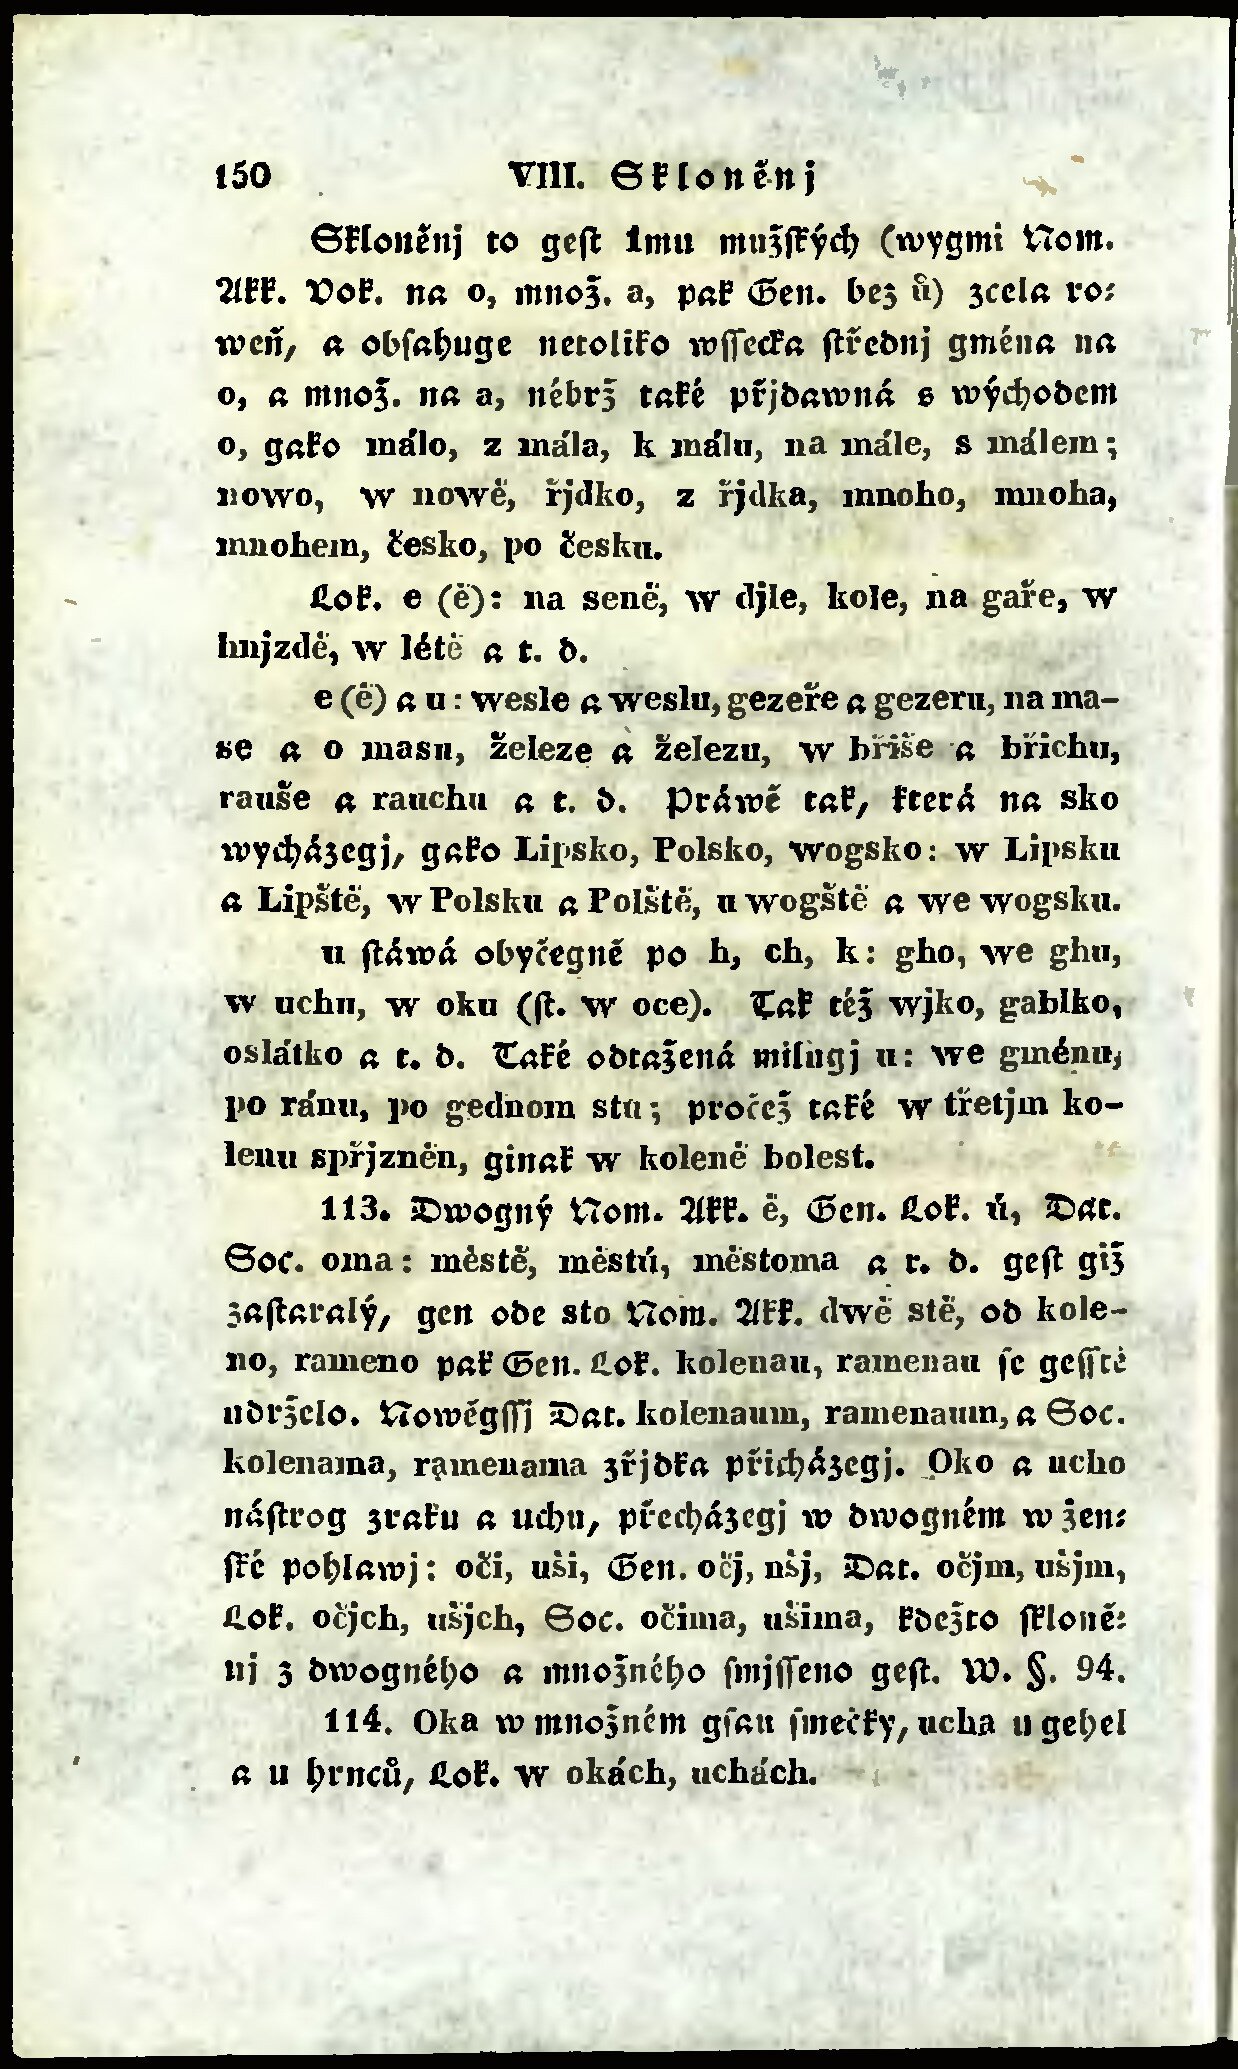 150 VIII. Skloněnj
Skloněnj to gest 1mu mužských (wygmi Nom.
Akk. Vok. na o, množ. a, pak Gen. bez ů) zcela ro-
weň, a obsahuge netoliko wssecka střednj gména na
o, a množ. na a, nébrž také přjdawná s wýchodem
o, gako málo, z mála, k málu, na mále, s málem;
nowo, w nowě, řjdko, z řjdka, mnoho, mnoha,
mnohem, česko, po česku.
Lok. e (ě): na seně, w djle, kole, na gaře, w
hnjzdě, w létě a t. d.
e (ě) a u: wesle a weslu, gezeře a gezeru, na ma-
se a o masu, železe a železu, w břiše a břichu,
rauše a rauchu a t. d. Práwě tak, která na sko
wycházegj, gako Lipsko, Polsko, wogsko: w Lipsku
a Lipště, w Polsku a Polště, u wogště a we wogsku.
u stáwá obyčegně po h, ch, k: gho, we ghu,
w uchu, w oku (st. w oce). Tak též wjko, gablko,
oslátko a t. d. Také odtažená milugj u: we gménu,
po ránu, po gednom stu; pročež také w třetjm ko-
lenu spřjzněn, ginak w koleně bolest.
113. Dwogný Nom. Akk. ě, Gen. Lok. ú, Dat.
Soc. oma: městě, městú, městoma a t. d. gest giž
zastaralý, gen ode sto Nom. Akk. dwě stě, od kole-
no, rameno pak Gen. Lok. kolenau, ramenau se gesstě
udrželo. Nowěgssj Dat. kolenaum, ramenaum, a Soc.
kolenama, ramenama zřjdka přicházegj. Oko a ucho
nástrog zraku a uchu, přecházegj w dwogném w žen-
ské pohlawj: oči, uši, Gen. očj, ušj, Dat. očjm, ušjm,
Lok. očjch, ušjch, Soc. očima, ušima, kdežto skloně-
nj z dwogného a množného smjsseno gest. W. §. 94.
114. Oka w množném gsau smečky, ucha u gehel
a u hrnců, Lok. w okách, uchách.